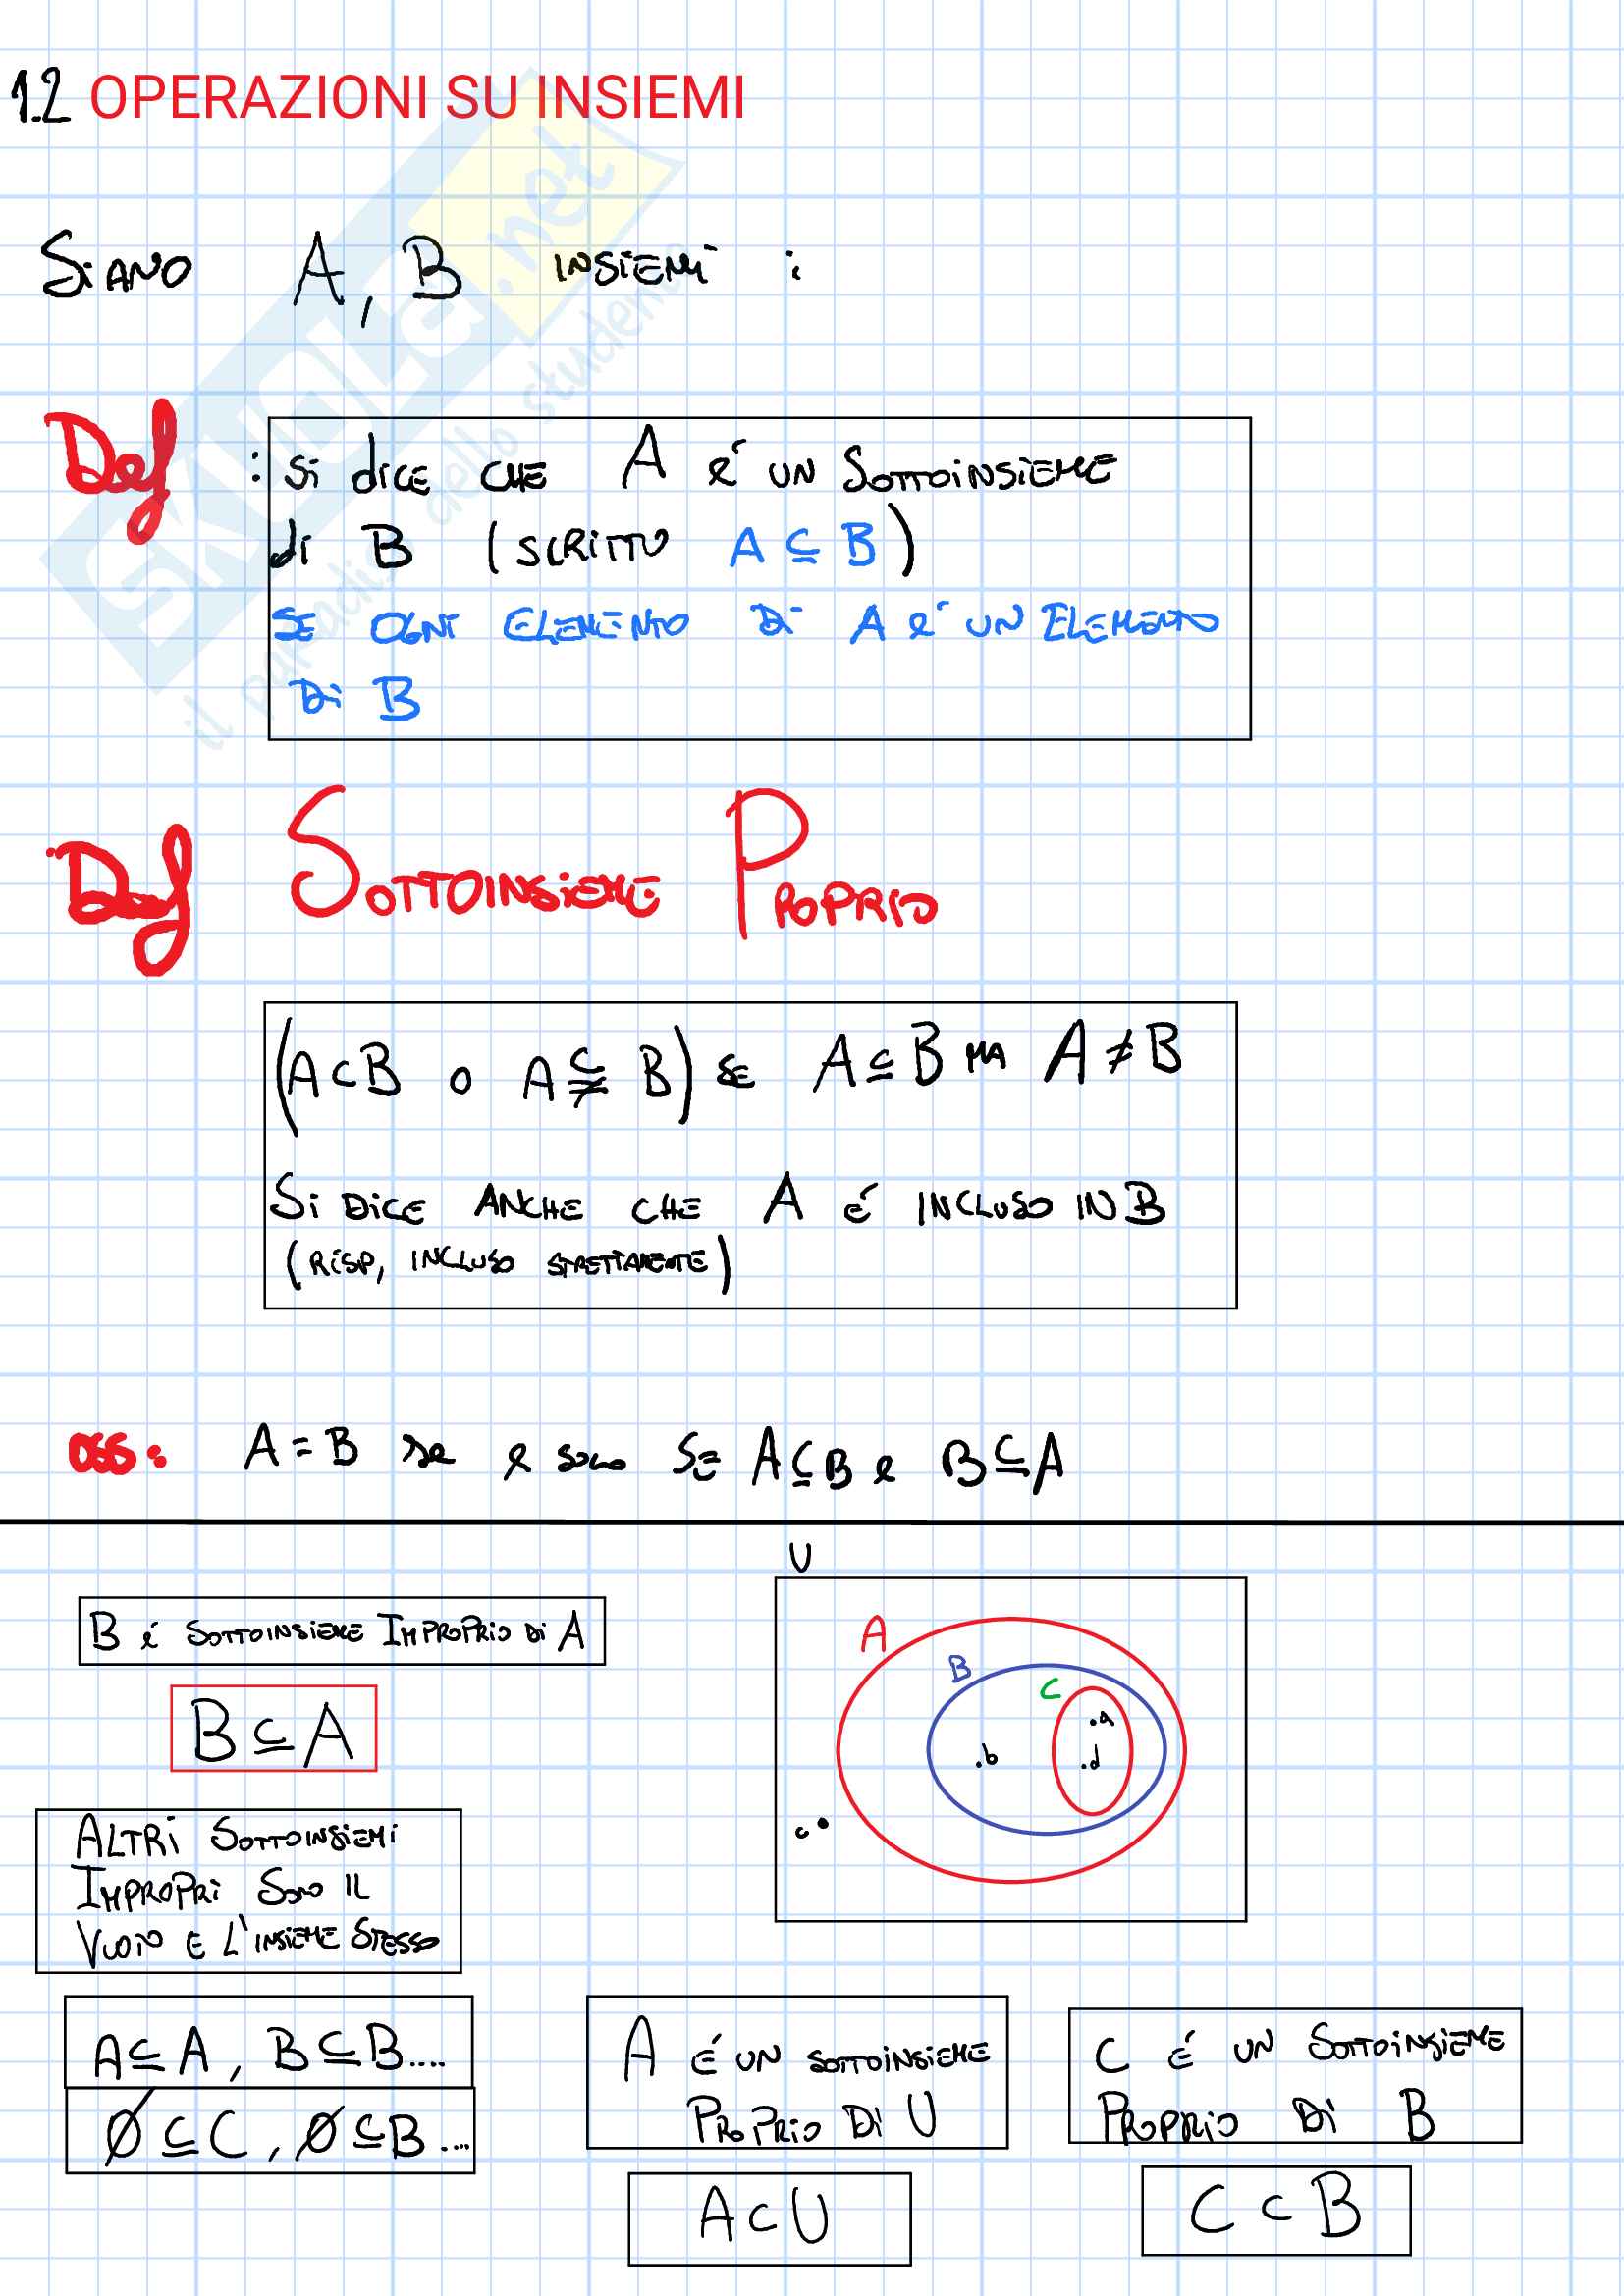 1.2 OPERAZIONI SU INSIEMI
SIANO A, B INSIEMI :
Def : Si dice CHE A è UN SOTTOINSIEME
di B (SCRITTO A ⊆ B)
SE OGNI ELEMENTO DI A è UN ELEMENTO
Di B
Def SOTTOINSIEME PROPRIO
(A⊂B o A⊊B) SE A⊆B MA A≠B
Si DICE ANCHE CHE A É INCLUSO IN B
(RISP, INCLUSO STRETTAMENTE)
OSS: A=B se e solo SE A⊆B e B⊆A
U
B é SOTTOINSIEME IMPROPRIO Di A
A
B
C
B⊆A
.a
.b
.d
c•
ALTRI SOTTOINSIEMI
IMPROPRI SONO IL
VUOTO E L'INSIEME STESSO
A⊆A, B⊆B....
∅⊆C, ∅⊆B....
A É UN SOTTOINSIEME
PROPRIO Di U
A⊂U
C É UN SOTTOINSIEME
PROPRIO Di B
C⊂B
SKUOLA.net
il paradiso dello studente